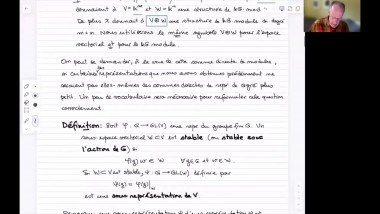 donnaient à V = k^m et W = k^n une structure de kG-mod.
De plus X donnait à V⊕W une structure de kG-module de degré
m+n. Nous utiliserons le même symbole V⊕W pour l'espace
vectoriel et pour le kG-module.
On peut se demander, à la vue de cette somme directe de modules,
si certaines des représentations que nous avons obtenues précédemment ne
seraient pas elles-mêmes des sommes directes de repr. de degré plus
petit. Un peu de vocabulaire sera nécessaire pour formuler cette question
correctement.
Définition: Soit φ: G → GL(V) une repr. du groupe fini G. Un
sous-espace vectoriel W ⊂ V est stable (ou stable sous
l'action de G) si
φ(g)w ∈ W ∀g∈G et w∈W.
Si W⊂V est stable, ψ: G → GL(W) définie par
ψ(g) = φ(g)|_W
est une sous-représentation de V